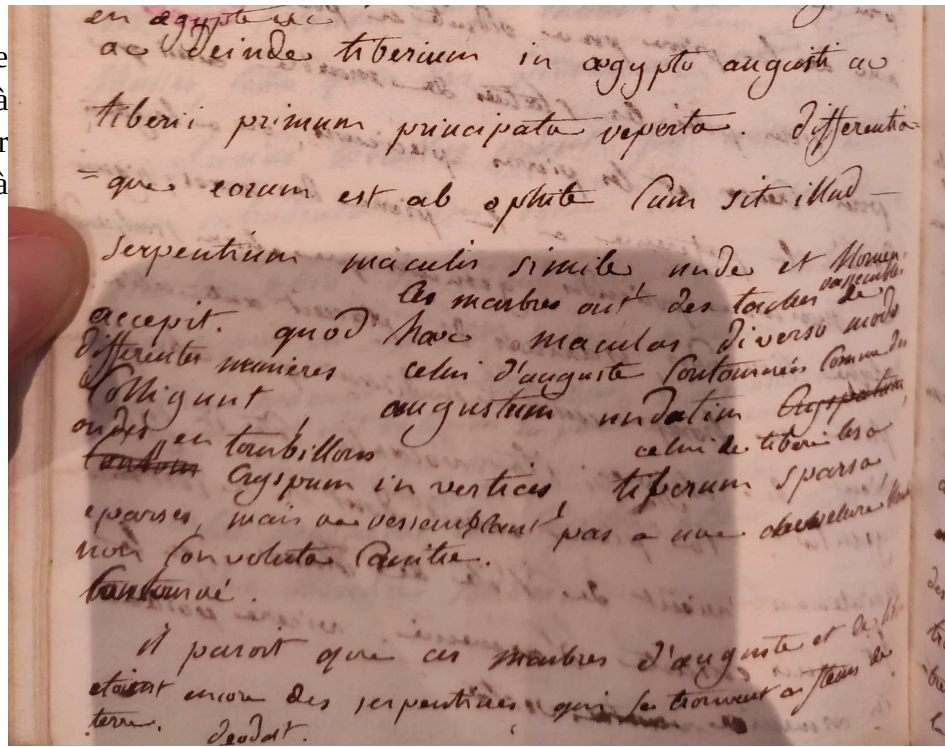 en ægypte
ac deinde tiberium in ægypto augusti ac
tiberii primum principatu reperta. differentia
=que eorum est ab ophite cum sit illud
serpentium maculis simile unde et nomen
ces marbres ont des taches de
accepit. quod hæc maculas diverso modo
differentes manières celui d'auguste contournées comme des
colligunt augustum undatim cryspatum
ondes en tourbillons celui de tibere les a
cryspum in vertices, tiberium sparsa
eparses, mais ne ressemblent pas a une chevelure
non convoluta canitie.
contourné.
il paroit que ces marbres d'auguste et de
etoient encore des serpentines qui se trouvent a fleur de
terre.
e
à
r
à